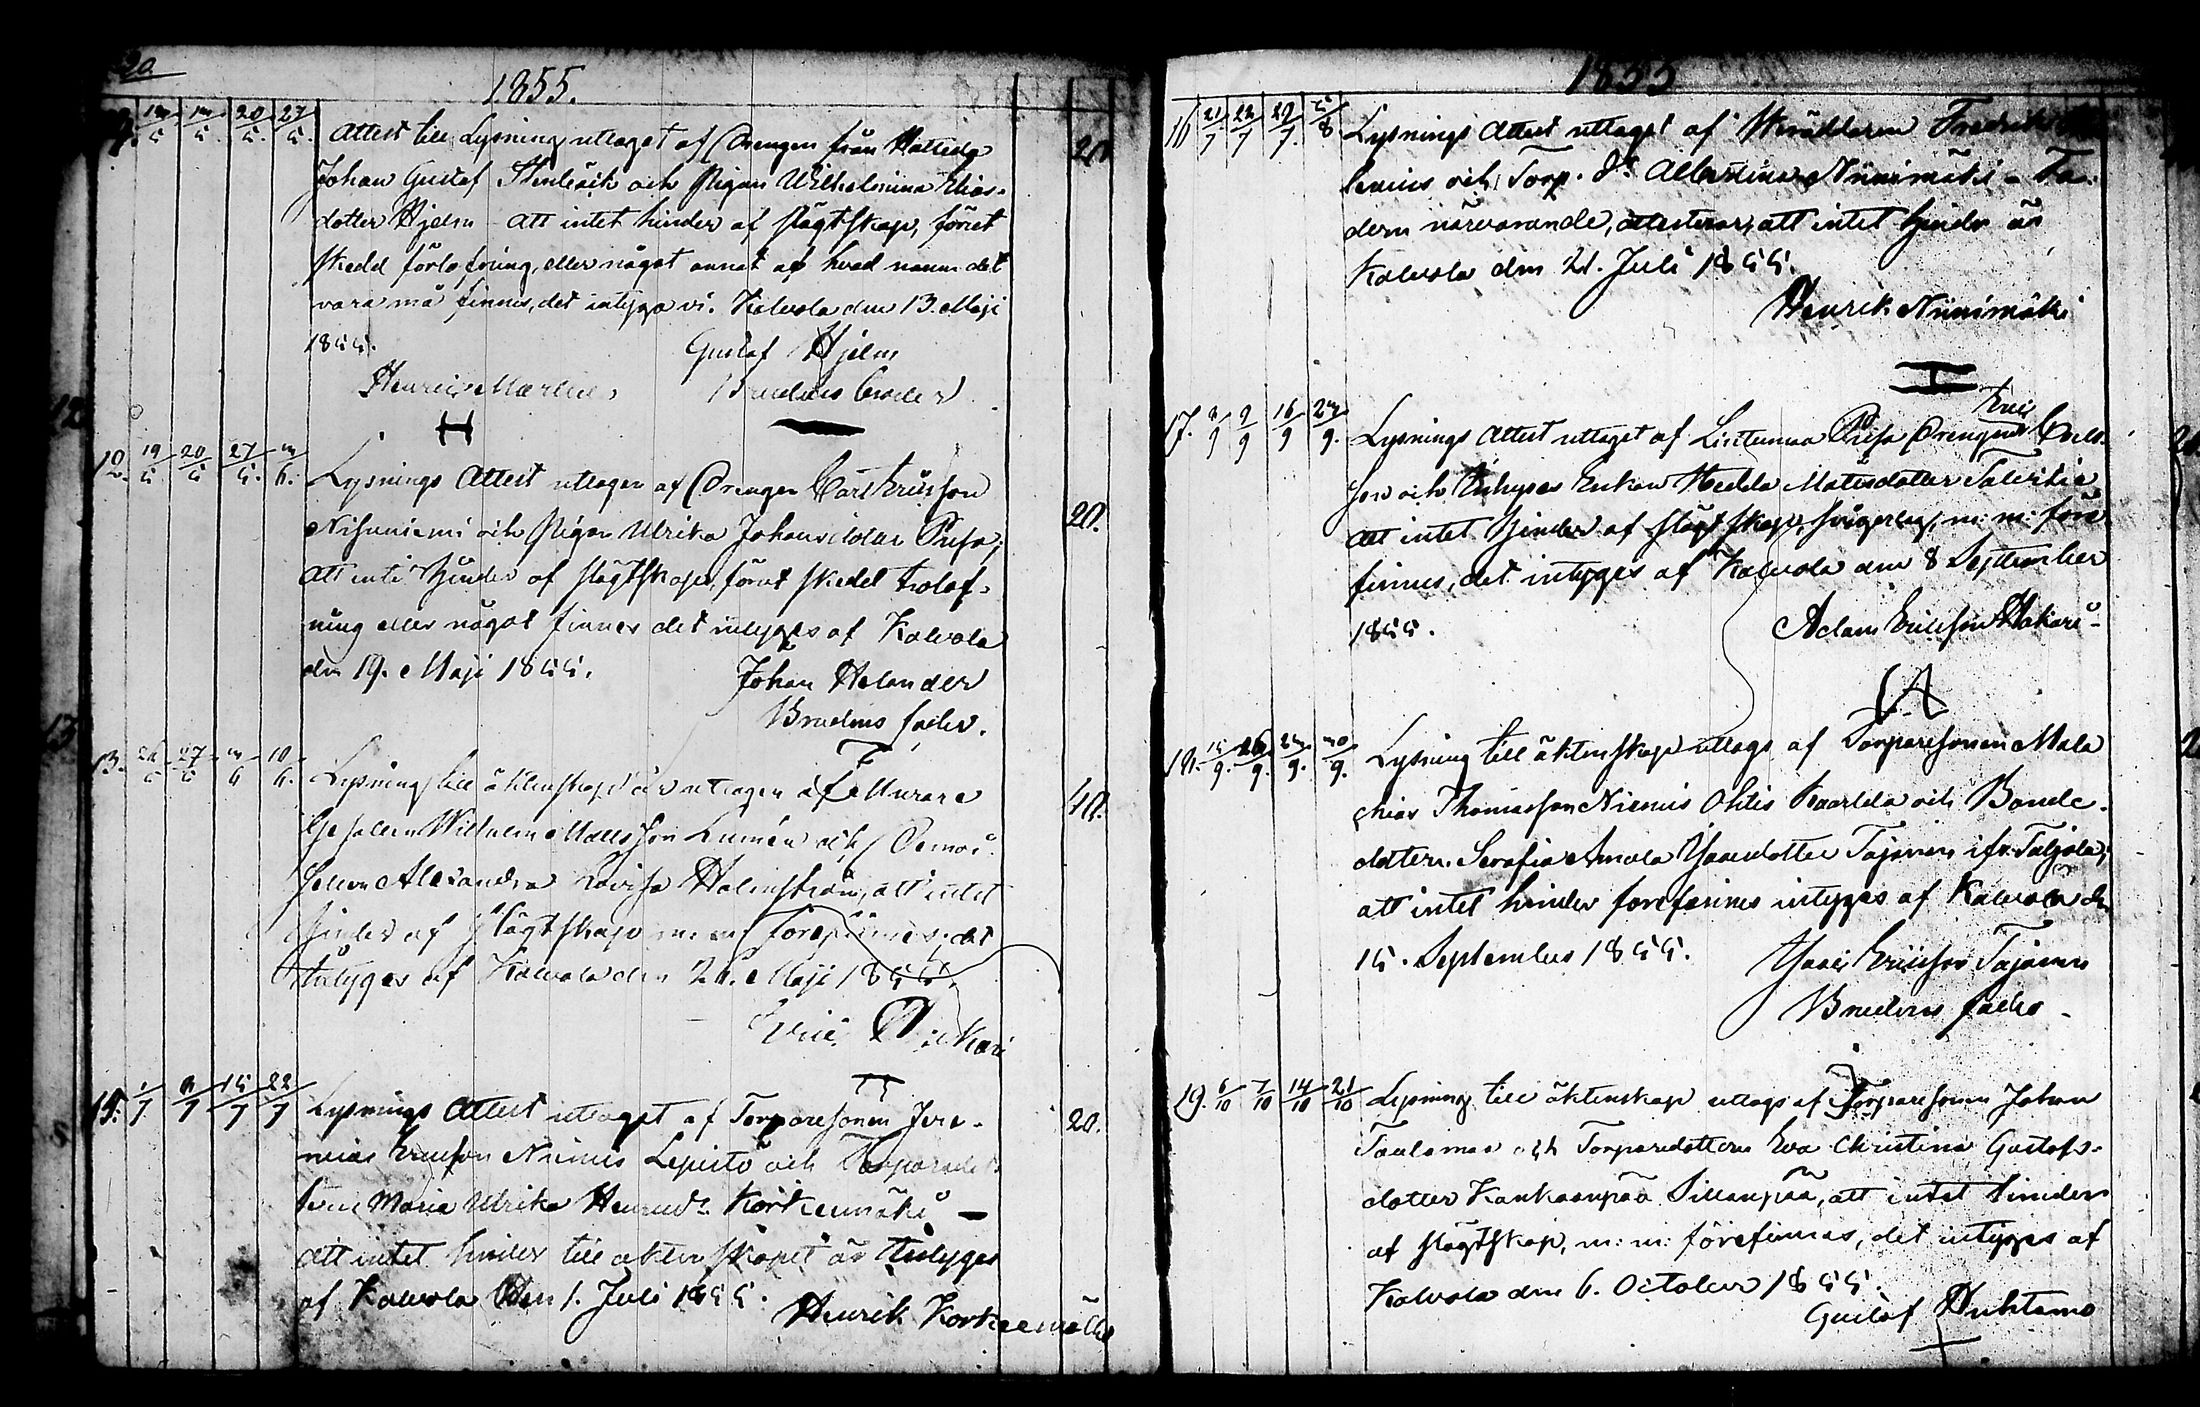 20.
1855.
13/5. 13/5. 20/5. 27/5.
Attest till Lysning uttaget af Drengen från Hattula
Johan Gustaf och Pigan Wilhelmina Elias-
dotter Hjelm - att intet hinder af slägtskap, förut
skedd förlofning, eller något annat af hvad namn det
vara må finnes, det intyga vi. Kalvola den 13. Maji
1855. Gustaf Hjelm
Henric Brudens fader
20
12. 19/5 20/5 27/5. 3/6.
Lysnings Attest uttagen af Drengen Carl Ericsson
Niíuniemi och Pigan Ulrika Johansdotter
att intet hinder af slägtskap, förut skedd trolof-
ning eller något finnes det intyges af Kalvola
den 19. Maji 1855. Johan Helander
Brudens fader.
20.
13. 26/5 27/5 3/6 10/6.
Lysning till äktenskap är uttagen af Murare
Gesellen Wilhelm Mattsson Lumén och Demoi-
sellen Alexandra Lovisa Holmström, att intet
hinder af slägtskap m m förefinnes, det
intyges af Kalvola den 26. Maji 1855.
Eric
40.
15. 1/7 8/7 15/7 22/7
Lysnings Attest uttaget af Torparesonen Jere-
mias Ericsson Niemis Lepistö och Torparedot-
tern Maria Ulrika Henricd:r Korkeemäki —
att intet hinder till äktenskapet är intyges
af Kalvola den 1. Juli 1855. Henrik Korkeemäki
20.
1855
16 21/7 22/7 29/7. 5/8
Lysnings Attest uttaget af Skräddaren Fredrik
lenius och Torp. d:r Albertina Niinimäki - Fa-
dern närvarande, attesterar, att intet hinder är
Kalvola den 21. Juli 1855.
Henrik Niinimäki
17. 8/9 9/9 16/9 23/9.
Eric
Lysnings Attest uttaget af Lintumaa Drengen Carls-
son och Inhyses Enkan Hedda Matsdotter
att intet hinder af slägtskap, svågerlag, m: m: före-
finnes, det intyges af Kalvola den 8 September
1855. Adam Ericsson Hakari
18. 15/9. 16/9. 23/9. 30/9.
Lysning till äktenskap uttags af Torparesonen Mala-
chias Thomasson Niemis Ohtis Kaarlela och Bonde-
dottern Serafia Amala Isacsdotter Tajanen ifr. Taljala;
att intet hinder förefinnes intyges af Kalvola den
15. September 1855. Isaac Ericsson Tajanen
Brudens fader -
19. 6/10 7/10 14/10 21/10
Lysning till äktenskap uttags af Torparesonen Johan
och Torparedottern Eva Christina Gustafs-
dotter Kankaanpää Sillanpää, att intet hinder
af slägtskap, m: m: förefinnes, det intyges af
Kalvola den 6. October 1855.
Gustaf Huhtamo